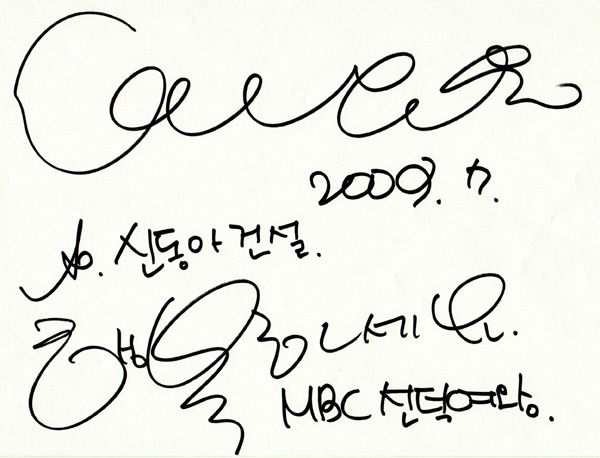 2009. 7.
to. 신동아건설.
행복하세요.
MBC 선덕여왕.